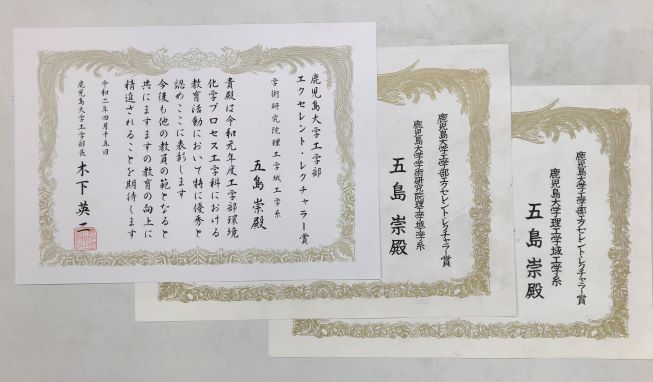 鹿児島大学工学部
エクセレント・レクチャラー賞
学術研究院理工学域工学系
五島崇殿
貴殿は令和元年度工学部環境
化学プロセス工学科における
教育活動において特に優秀と
認めここに表彰します
今後も他の教員の範となると
共にますますの教育の向上に
精進されることを期待します
令和二年四月十五日
鹿児島大学工学部長 木下英二
鹿児島大学工学部エクセレント・レクチャラー賞
鹿児島大学学術研究院理工学域工学系
五島崇殿
鹿児島大学工学部エクセレント・レクチャラー賞
鹿児島大学理工学域工学系
五島崇殿